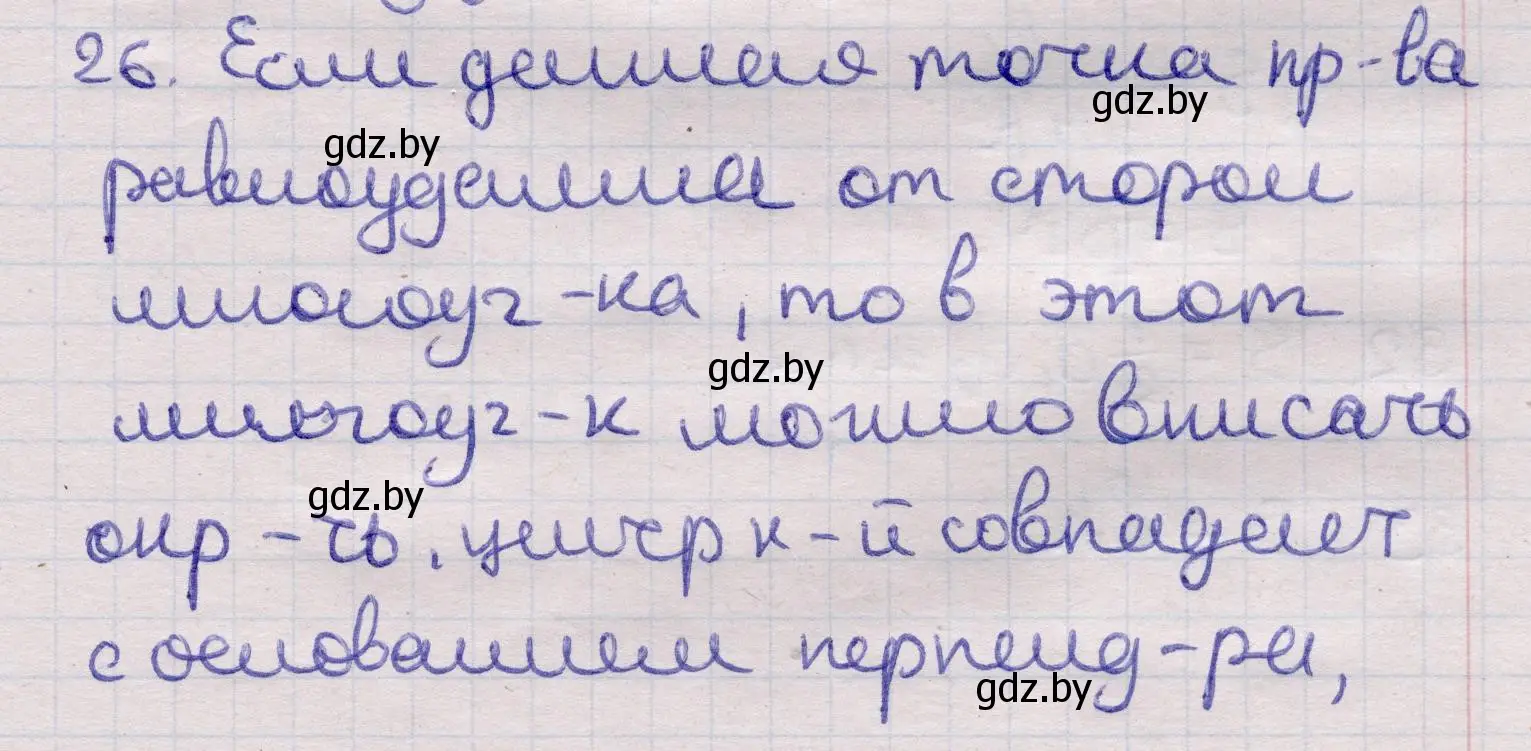 26. Если данная точка пр-ва
gdz.by
gdz.by
равноудалена от сторон
многоуг-ка, то в этот
gdz.by
многоуг-к можно вписать
gdz.by
окр-ть, центр к-й совпадает
с основанием перпенд-ра,
gdz.by